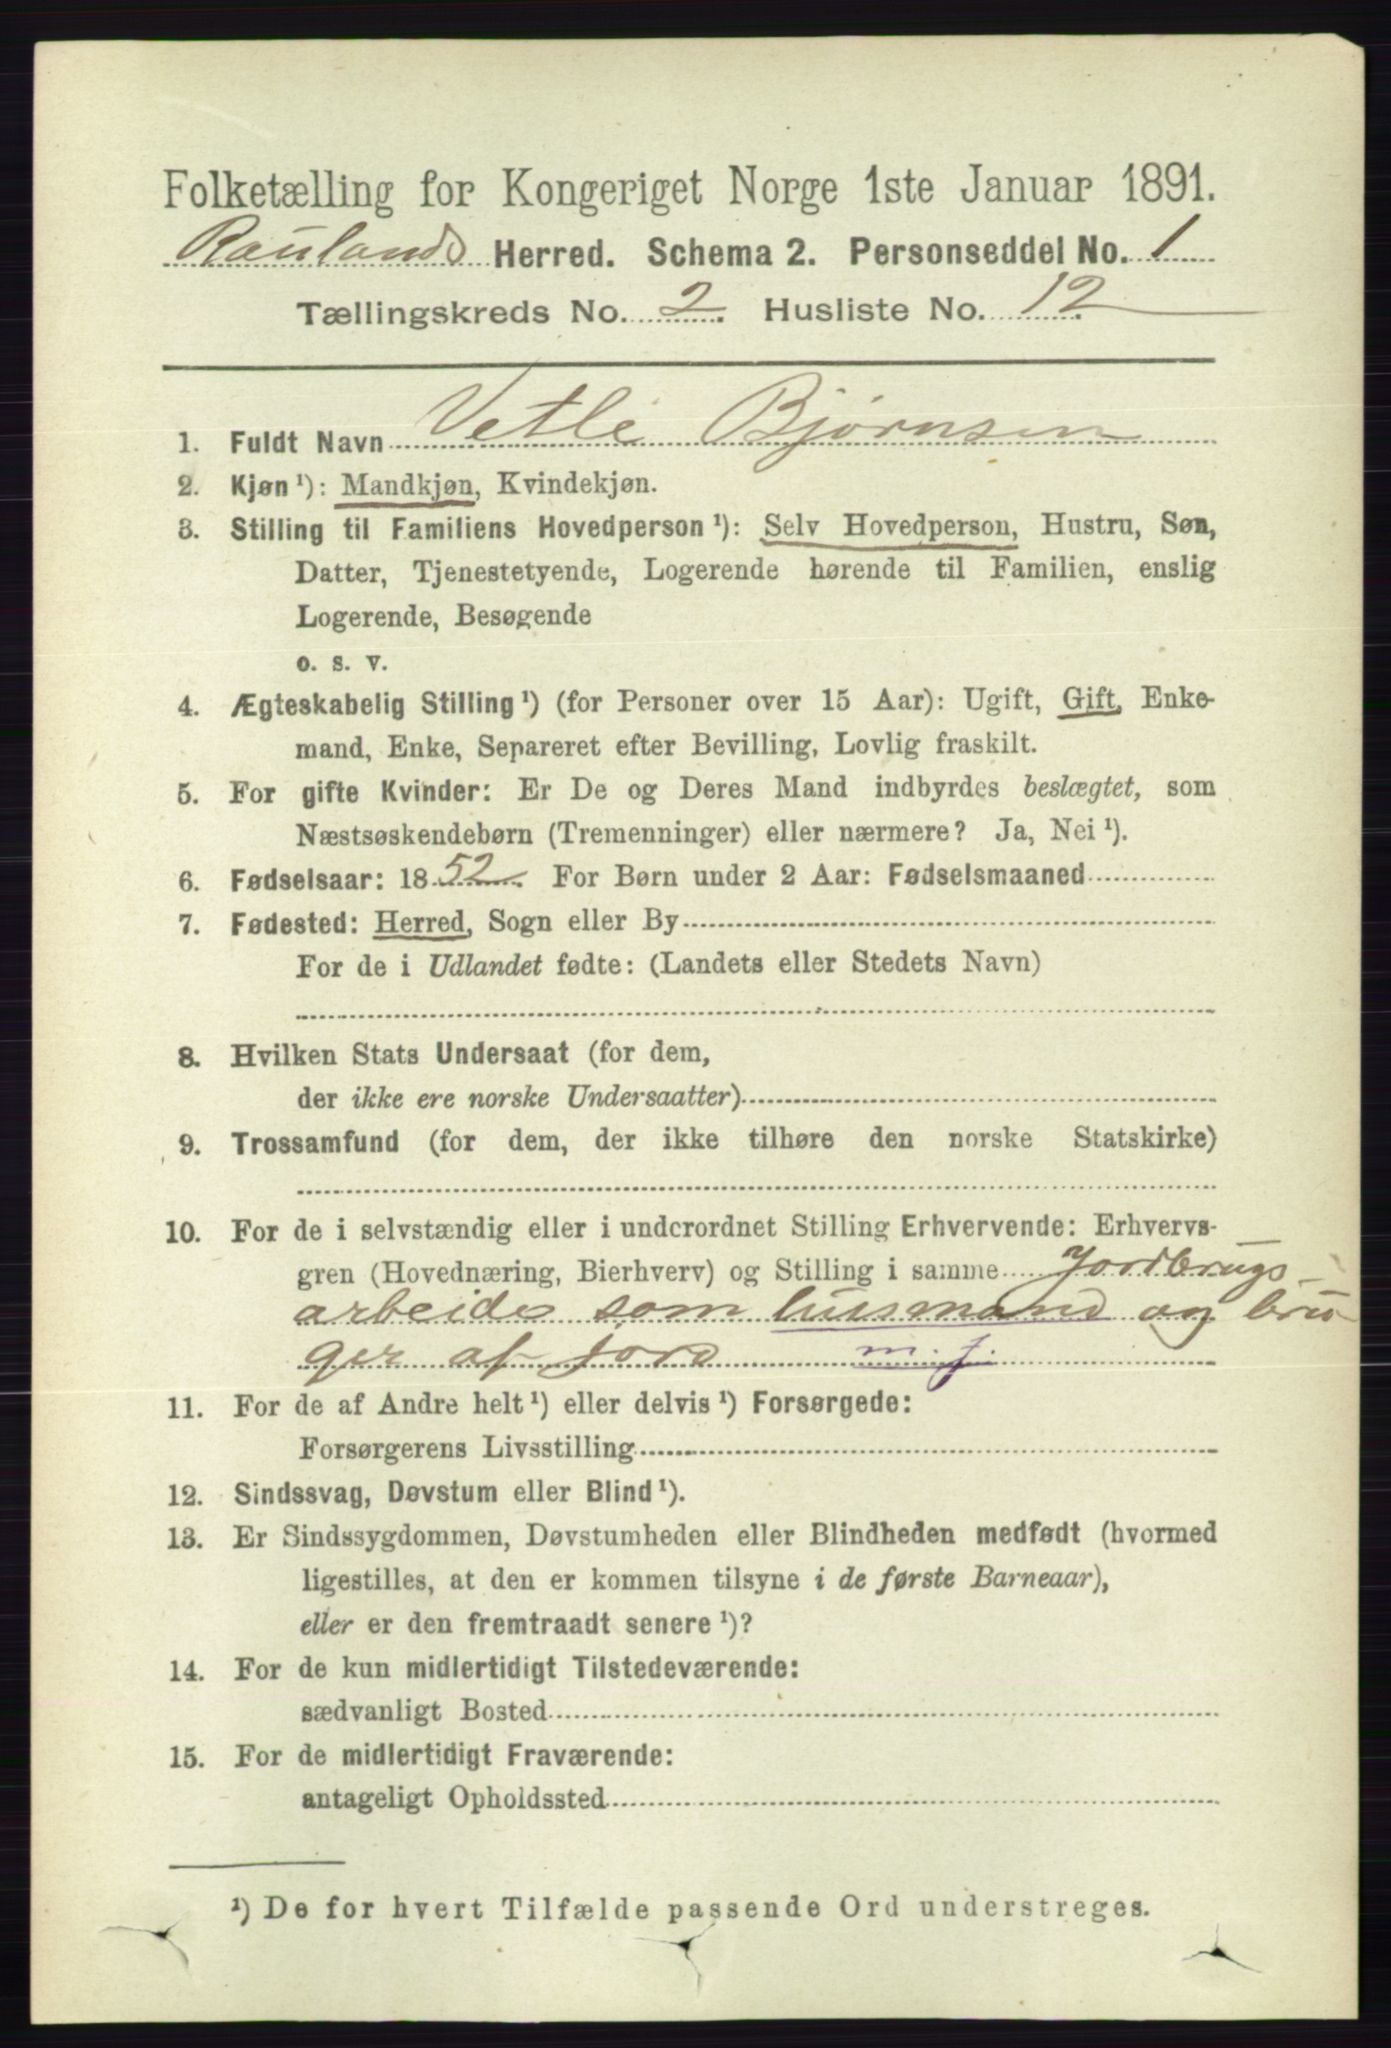 Folketælling for Kongeriget Norge 1ste Januar 1891.
Raulands Herred. Schema 2. Personseddel No. 1
Tællingskreds No. 2. Husliste No. 12
1. Fuldt Navn Vetle Bjørnsen
2. Kjøn ¹): Mandkjøn, Kvindekjøn.
3. Stilling til Familiens Hovedperson ¹): Selv Hovedperson, Hustru, Søn,
Datter, Tjenestetyende, Logerende hørende til Familien, enslig
Logerende, Besøgende
o. s. v.
4. Ægteskabelig Stilling ¹) (for Personer over 15 Aar): Ugift, Gift, Enke-
mand, Enke, Separeret efter Bevilling, Lovlig fraskilt.
5. For gifte Kvinder: Er De og Deres Mand indbyrdes beslægtet, som
Næstsøskendebørn (Tremenninger) eller nærmere? Ja, Nei ¹).
6. Fødselsaar: 1852. For Børn under 2 Aar: Fødselsmaaned
7. Fødested: Herred, Sogn eller By
For de i Udlandet fødte: (Landets eller Stedets Navn)
8. Hvilken Stats Undersaat (for dem,
der ikke ere norske Undersaatter)
9. Trossamfund (for dem, der ikke tilhøre den norske Statskirke)
10. For de i selvstændig eller i underordnet Stilling Erhvervende: Erhvervs-
gren (Hovednæring, Bierhverv) og Stilling i samme Jordbrugs-
arbeide som husmand og bru
ger af jord m. j.
11. For de af Andre helt ¹) eller delvis ¹) Forsørgede:
Forsørgerens Livsstilling
12. Sindssvag, Døvstum eller Blind ¹).
13. Er Sindssygdommen, Døvstumheden eller Blindheden medfødt (hvormed
ligestilles, at den er kommen tilsyne i de første Barneaar),
eller er den fremtraadt senere ¹)?
14. For de kun midlertidigt Tilstedeværende:
sædvanligt Bosted
15. For de midlertidigt Fraværende:
antageligt Opholdssted
¹) De for hvert Tilfælde passende Ord understreges.